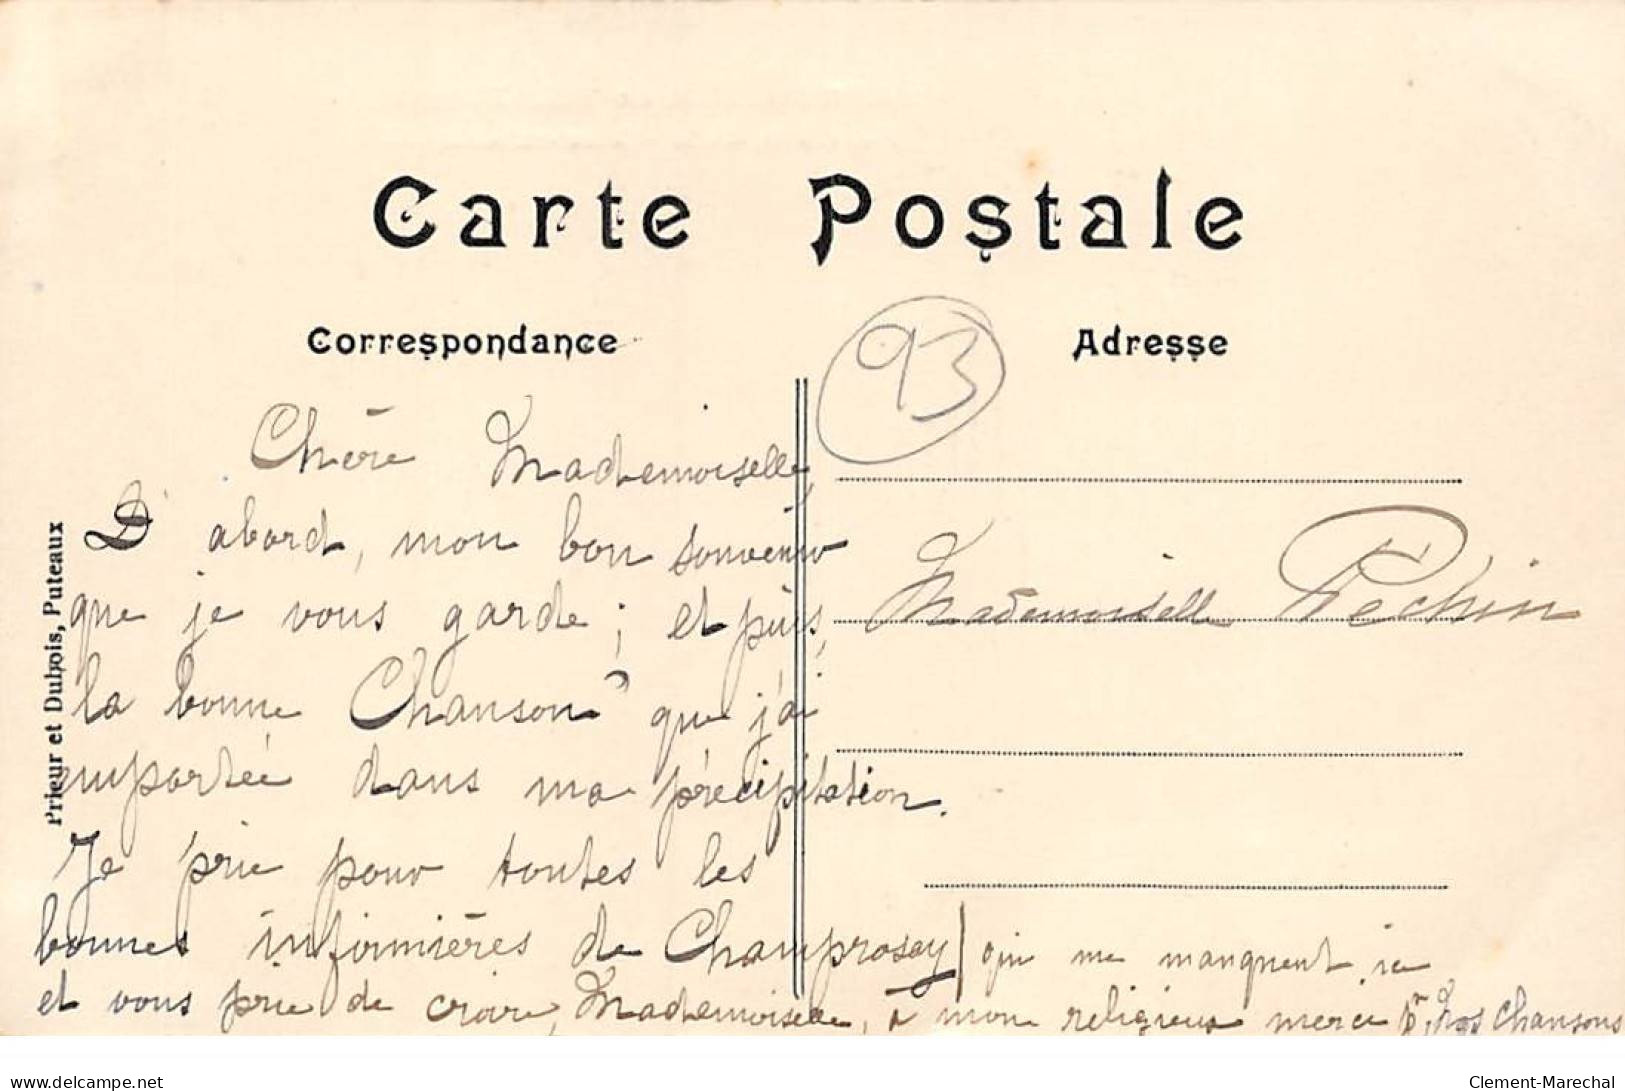 Carte Postale
Correspondance
Adresse
93
Prieur et Dubois, Puteaux
Chère Mademoiselle,
D'abord, mon bon souvenir
que je vous garde ; et puis,
la bonne Chanson que j'ai
emportée dans ma précipitation.
Je prie pour toutes les
bonnes infirmières de Champrosay
et vous prie de croire, Mademoiselle, à mon religieux merci pr. Nos chansons
qui me manquent ici
Mademoiselle Péchin
delcampe.net
Clement-Marechal